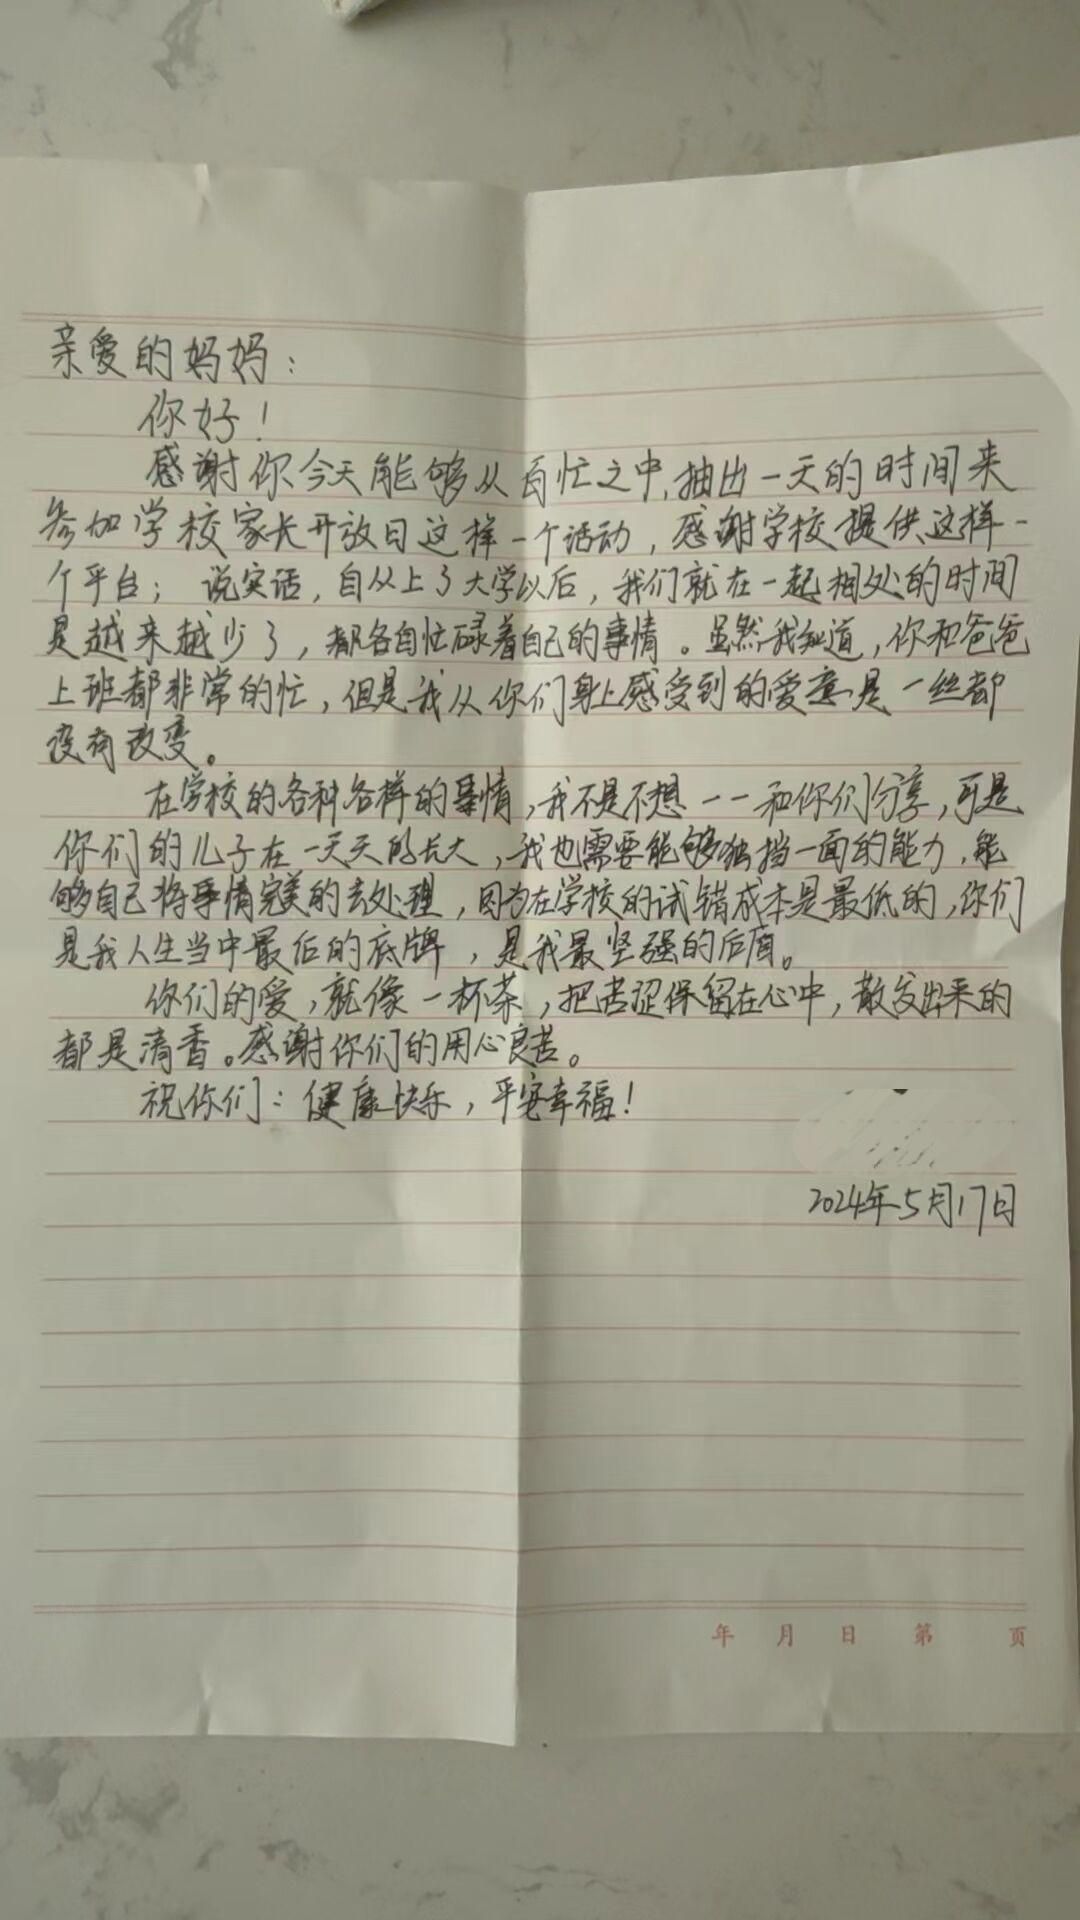 亲爱的妈妈：
你好！
感谢你今天能够从百忙之中,抽出一天的时间来
参加学校家长开放日这样一个活动，感谢学校提供这样一
个平台；说实话，自从上了大学以后，我们就在一起相处的时间
是越来越少了，都各自忙碌着自己的事情。虽然我知道，你和爸爸
上班都非常的忙，但是我从你们身上感受到的爱意是一丝都
没有改变。
在学校的各种各样的事情，我不是不想一一和你们分享，可是
你们的儿子在一天天的长大，我也需要能够独挡一面的能力，能
够自己将事情完美的去处理，因为在学校的试错成本是最低的，你们
是我人生当中最后的底牌，是我最坚强的后盾。
你们的爱，就像一杯茶，把苦涩保留在心中，散发出来的
都是清香。感谢你们的用心良苦。
祝你们：健康快乐，平安幸福！
2024年5月17日
年 月 日 第 页